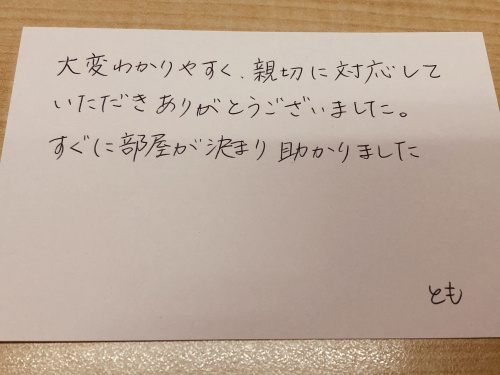 大変わかりやすく、親切に対応して
いただきありがとうございました。
すぐに部屋が決まり助かりました
とも